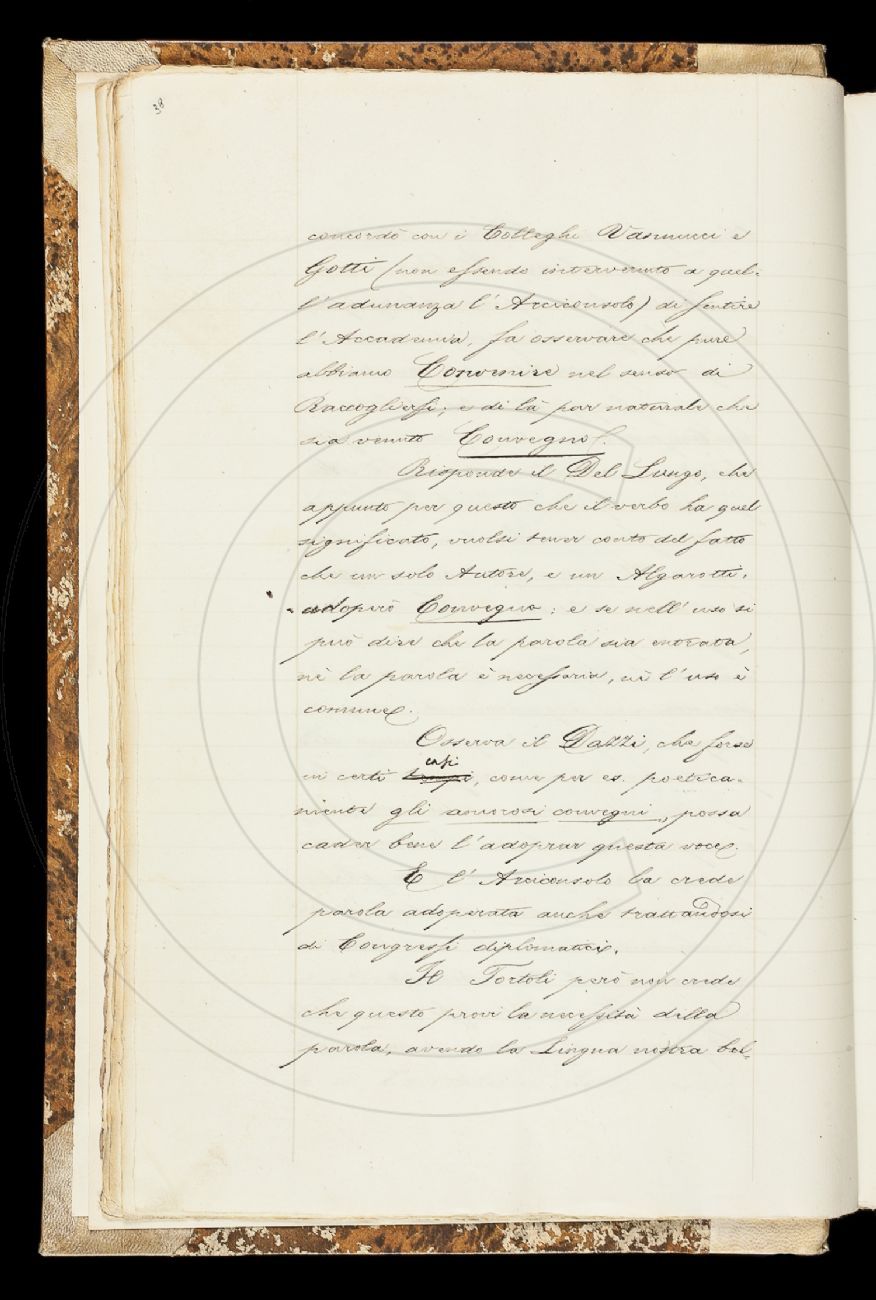 38
concordò con i Colleghi Vannucci e
Gotti (non essendo intervenuto a quel-
l'adunanza l'Arciconsolo) di sentire
l'Accademia, fa osservare che pure
abbiamo Convenire nel senso di
Raccogliersi; e di là par naturale che
sia venuto Convegno.
Risponde il Del Lungo, che
appunto per questo che il verbo ha quel
significato, vuolsi tener conto del fatto
che un solo Autore, e un Algarotti,
adoperò Convegno: e se nell'uso si
può dire che la parola sia entrata,
nè la parola è necessaria, nè l'uso è
comune.
Osserva il Dazzi, che forse
in certi casi, come per es. poetica-
mente gli amorosi convegni, possa
cader bene l'adoprar questa voce.
E l'Arciconsolo la crede
parola adoperata anche trattandosi
di Congressi diplomatici.
Il Tortoli però non crede
che questo provi la necessità della
parola, avendo la Lingua nostra bel-